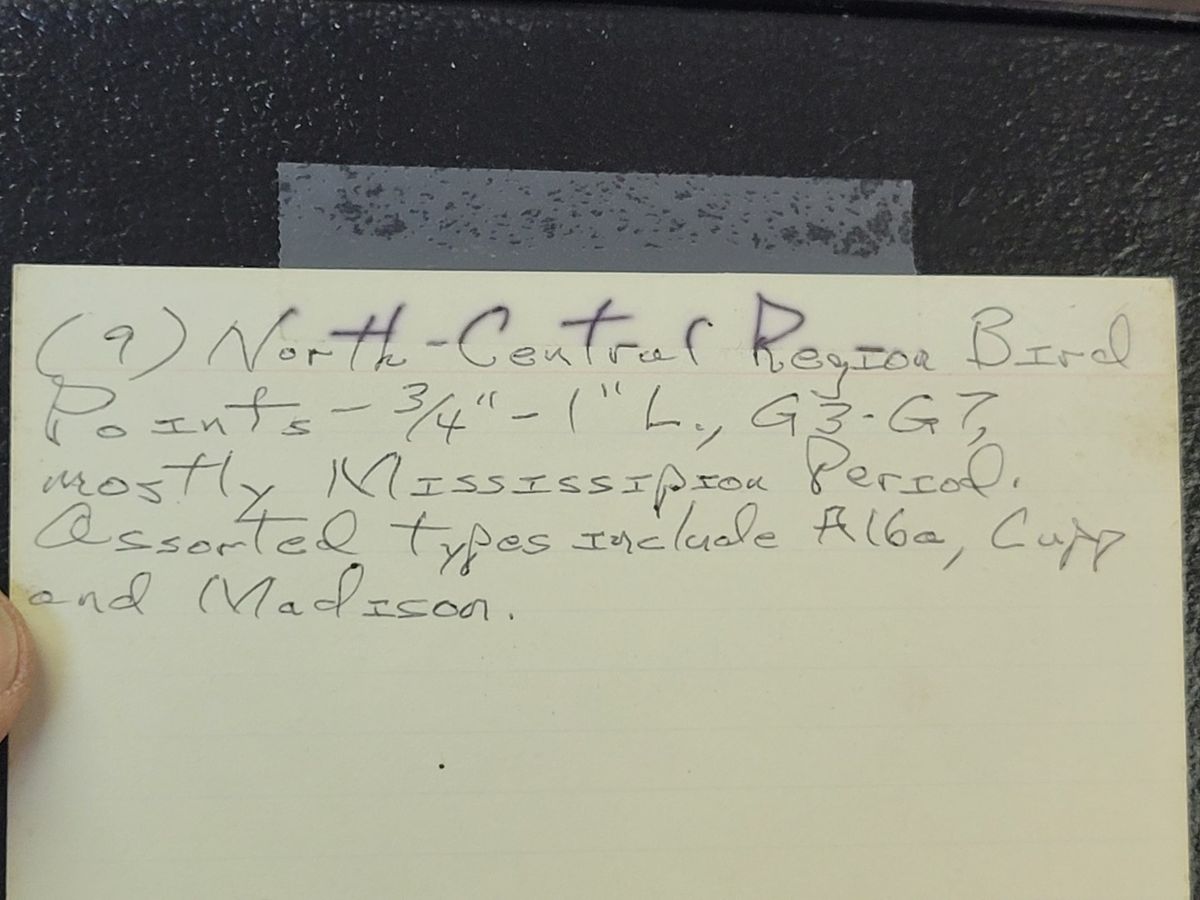 (9) North-Central Region Bird
Points - 3/4" - 1" L., G3-G7,
mostly Mississipion Period.
Assorted types include Alba, Cupp
and Madison.